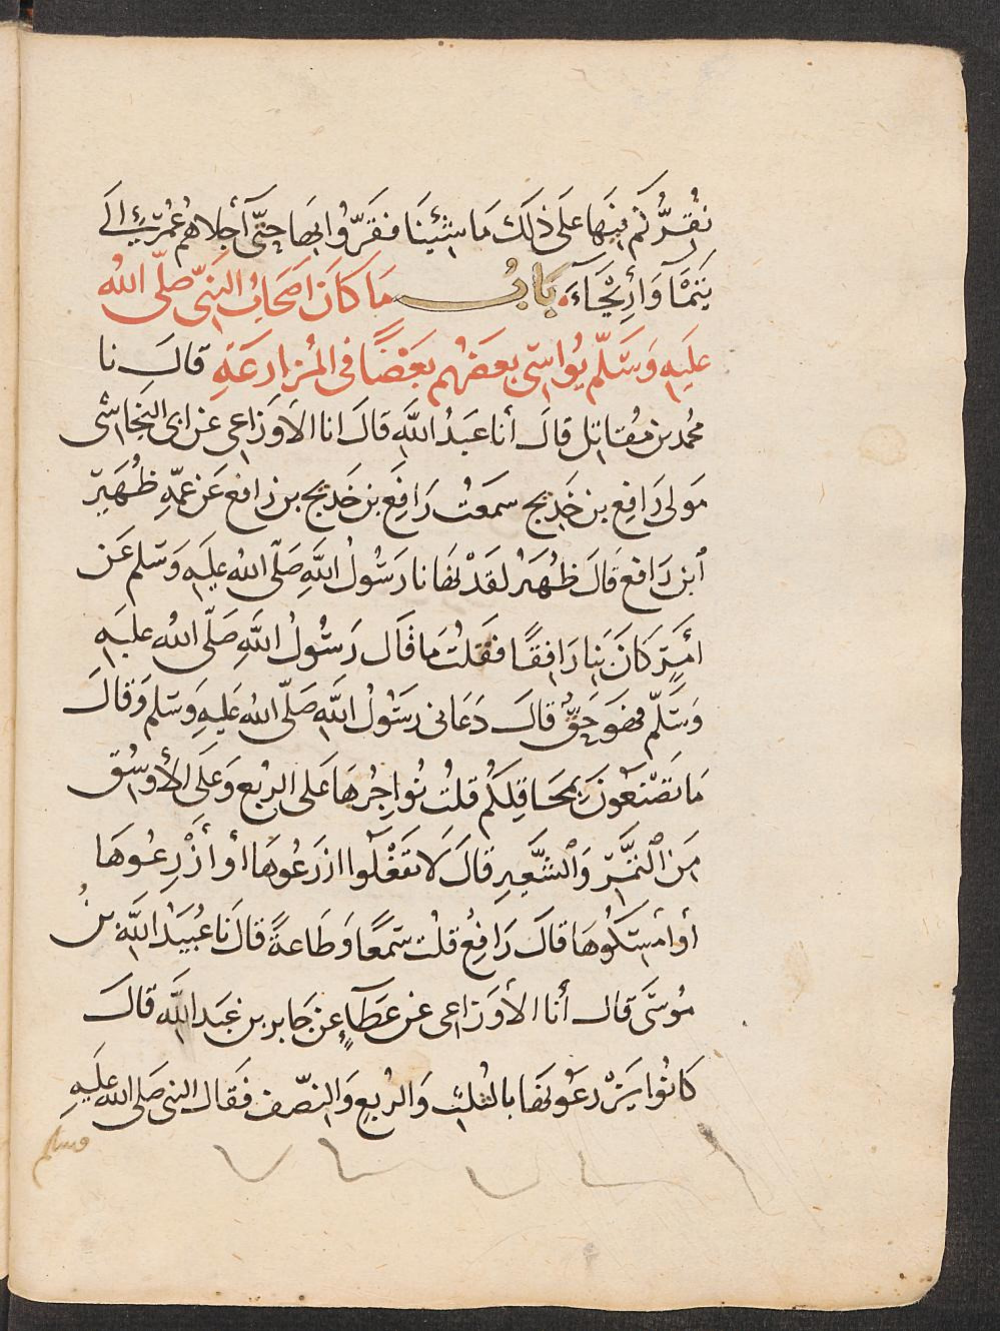 نُقِرُّكُمْ فِيهَا عَلَى ذَلِكَ مَا شِئْنَا فَقَرُّوا بِهَا حَتَّى أَجْلَاهُمْ عُمَرُ إِلَى
تَيْمَآءَ وَأَرِيحَآءَ بَابُ مَا كَانَ أَصْحَابُ النَّبِيِّ صَلَّى اللهُ
عَلَيْهِ وَسَلَّمَ يُوَاسِي بَعْضُهُمْ بَعْضًا فِي الْمُزَارَعَةِ قَالَ نا
مُحَمَّد بن مُقَاتِل قَالَ أَنا عَبْدُ اللَّهِ قَالَ انا الْأَوْزَاعِي عَنْ أَبِي النَّجَاشِي
مَوْلَى رَافِع بن خَدِيج سَمِعْتُ رَافِعَ بن خَدِيج بن رَافِع عَنْ عَمِّهِ ظُهَيْرِ
ابْنِ رَافِع قَالَ ظُهَيْرٌ لَقَدْ نَهَانَا رَسُولُ اللَّهِ صَلَّى اللهُ عَلَيْهِ وَسَلَّمَ عَنْ
أَمْرٍ كَانَ بِنَا رَافِقًا فَقُلْتُ مَا قَالَ رَسُولُ اللَّهِ صَلَّى اللهُ عَلَيْهِ
وَسَلَّمَ فَهُوَ حَقٌّ قَالَ دَعَانِي رَسُولُ اللَّهِ صَلَّى اللهُ عَلَيْهِ وَسَلَّمَ وَقَالَ
مَا تَصْنَعُونَ بِمَحَاقِلِكُمْ قُلْتُ نُوَاجِرُهَا عَلَى الرُّبُعِ وَعَلَى الْأَوْسُقِ
مِنَ التَّمْرِ وَالشَّعِيرِ قَالَ لَا تَفْعَلُوا ازْرَعُوهَا أَوْ أَزْرِعُوهَا
أَوْ أَمْسِكُوهَا قَالَ رَافِعٌ قُلْتُ سَمْعًا وَطَاعَةً قَالَ نَا عُبَيْدُ اللَّهِ بْنُ
مُوسَى قَالَ أَنا الْأَوْزَاعِي عَنْ عَطَآءٍ عَنْ جَابِرِ بن عَبْدِ اللَّهِ قَالَ
كَانُوا يَزْرَعُونَهَا بِالثُّلُثِ وَالرُّبُعِ وَالنِّصْفِ فَقَالَ النَّبِي صَلَّى اللهُ عَلَيْهِ
وسلم